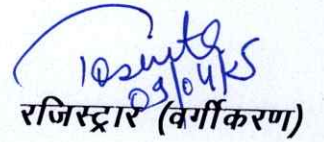 09/04/25
रजिस्ट्रार (वर्गीकरण)